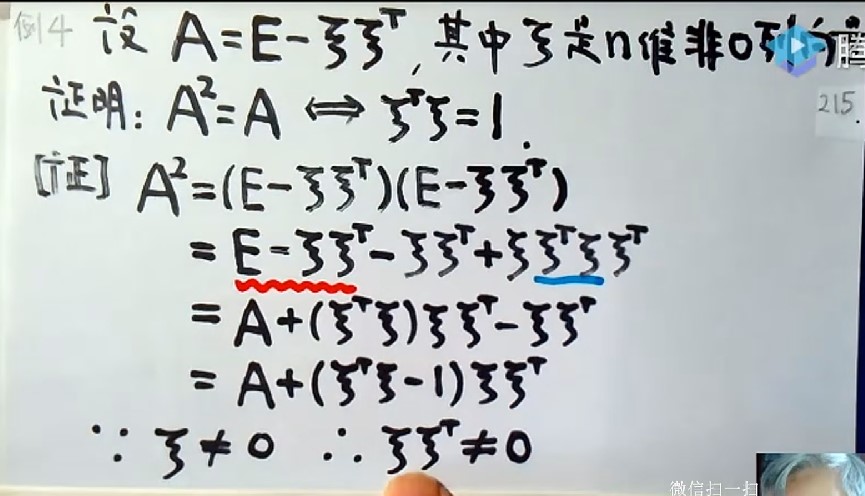 例4 设 A=E-ξξᵀ,其中ξ是n维非0列向量
215.
证明: A²=A ⟺ ξᵀξ=1.
[证] A²=(E-ξξᵀ)(E-ξξᵀ)
=E-ξξᵀ-ξξᵀ+ξξᵀξξᵀ
=A+(ξᵀξ)ξξᵀ-ξξᵀ
=A+(ξᵀξ-1)ξξᵀ
∵ ξ≠0 ∴ ξξᵀ≠0
微信扫一扫